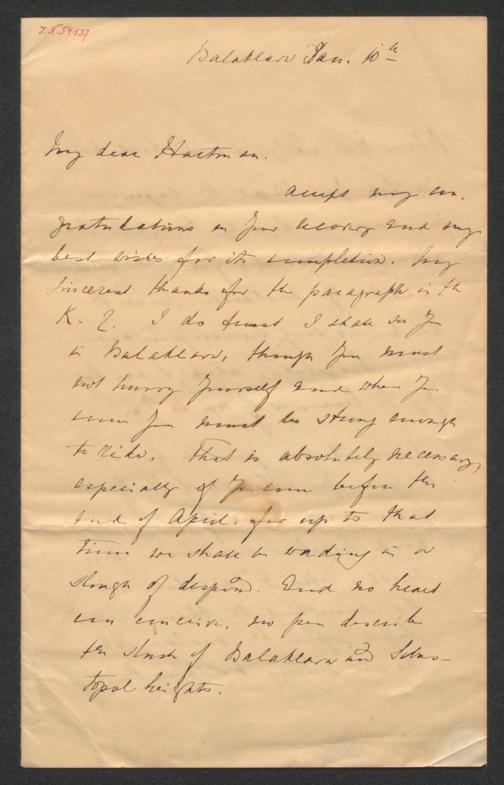 J.N. 59437
Balaklava Jan. 10th
My dear Hartman.
Accept my con-
gratulations on your recovery and my
best wishes for its completion. My
sincerest thanks for the paragraph in the
K. Z. I do trust I shall see you
in Balaklava, though you must
not hurry yourself and when you
come you must be strong enough
to ride. That is absolutely necessary,
especially if you come before the
end of April, for up to that
time we shall be wading in a
slough of despond. And no heart
can conceive, no pen describe
the slush of Balaklava and Sebas-
topol heights.